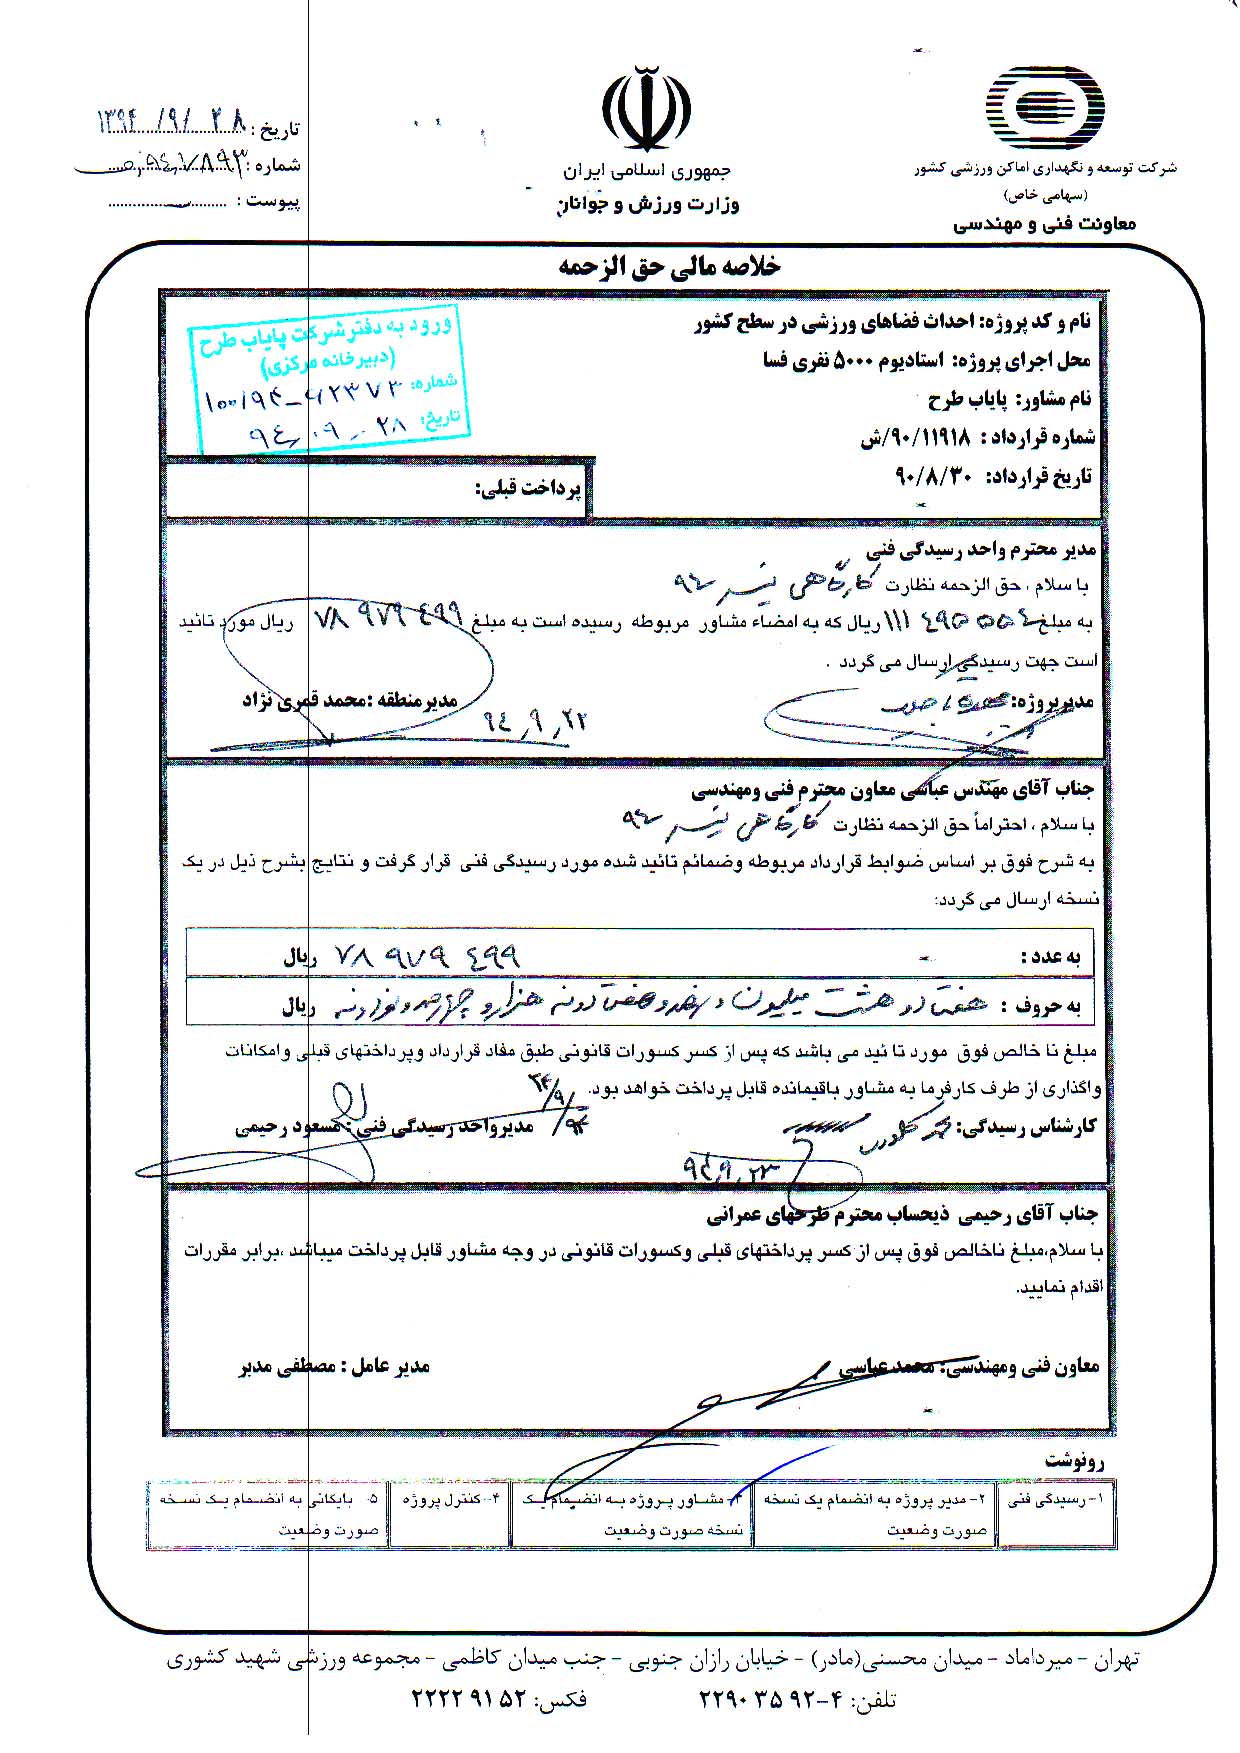 شرکت توسعه و نگهداری اماکن ورزشی کشور
(سهامی خاص)
معاونت فنی و مهندسی
جمهوری اسلامی ایران
وزارت ورزش و جوانان
تاریخ : ۱۳۹۴/۹/۲۸
شماره : ۹۴٫۷۸۹۳
پیوست :
خلاصه مالی حق الزحمه
نام و کد پروژه: احداث فضاهای ورزشی در سطح کشور
محل اجرای پروژه: استادیوم ۵۰۰۰ نفری فسا
نام مشاور: پایاب طرح
شماره قرارداد : ۹۰/۱۱۹۱۸/ش
تاریخ قرارداد: ۹۰/۸/۳۰
ورود به دفتر شرکت پایاب طرح
(دبیرخانه مرکزی)
شماره: ۱۰۰/۹۴-۶۲۳۷۲
تاریخ: ۹۴,۰۹,۲۸
پرداخت قبلی:
مدیر محترم واحد رسیدگی فنی
با سلام ، حق الزحمه نظارت کارگاهی تیر ۹۴
به مبلغ ۱۱۱ ۴۹۵ ۵۵۴ ریال که به امضاء مشاور مربوطه رسیده است به مبلغ ۷۸ ۹۷۹ ۴۹۹ ریال مورد تائید
است جهت رسیدگی ارسال می گردد .
مدیرپروژه:
مدیرمنطقه :محمد قمری نژاد
۹۴,۹,۲۲
جناب آقای مهندس عباسی معاون محترم فنی ومهندسی
با سلام ، احتراماً حق الزحمه نظارت کارگاهی تیر ۹۴
به شرح فوق بر اساس ضوابط قرارداد مربوطه وضمائم تائید شده مورد رسیدگی فنی قرار گرفت و نتایج بشرح ذیل در یک
نسخه ارسال می گردد:
به عدد : ۷۸ ۹۷۹ ۴۹۹ ریال
به حروف : هفتاد و هشت میلیون و نهصد و هفتاد و نه هزار و چهارصد و نود و نه ریال
مبلغ نا خالص فوق مورد تا ئید می باشد که پس از کسر کسورات قانونی طبق مفاد قرارداد وپرداختهای قبلی وامکانات
واگذاری از طرف کارفرما به مشاور باقیمانده قابل پرداخت خواهد بود.
کارشناس رسیدگی:
۹۴,۹,۲۳
مدیرواحد رسیدگی فنی : مسعود رحیمی
۹۴/۹/۲۴
جناب آقای رحیمی ذیحساب محترم طرحهای عمرانی
با سلام،مبلغ ناخالص فوق پس از کسر پرداختهای قبلی وکسورات قانونی در وجه مشاور قابل پرداخت میباشد ،برابر مقررات
اقدام نمایید.
معاون فنی ومهندسی: محمد عباسی
مدیر عامل : مصطفی مدبر
رونوشت
۱- رسیدگی فنی
۲- مدیر پروژه به انضمام یک نسخه
صورت وضعیت
۳- مشاور پروژه به انضمام یک
نسخه صورت وضعیت
۴- کنترل پروژه
۵. بایکانی به انضمام یک نسخه
صورت وضعیت
تهران - میرداماد - میدان محسنی(مادر) - خیابان رازان جنوبی - جنب میدان کاظمی - مجموعه ورزشی شهید کشوری
تلفن: ۴-۹۲ ۳۵ ۲۲۹۰
فکس: ۵۲ ۹۱ ۲۲۲۲